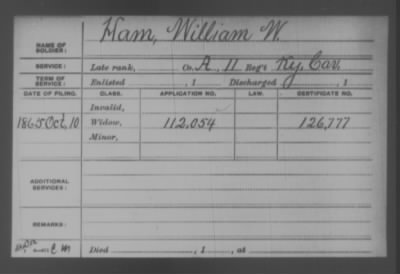 Ham, William W.
NAME OF SOLDIER:
SERVICE: Late rank, Co. A, 11 Reg't Ky. Cav.
TERM OF SERVICE: Enlisted , 1 Discharged , 1
DATE OF FILING. CLASS. APPLICATION NO. LAW. CERTIFICATE NO.
Invalid,
1865 Oct, 10 Widow, 112,054 126,777
Minor,
ADDITIONAL SERVICES:
REMARKS:
Died , 1 , at